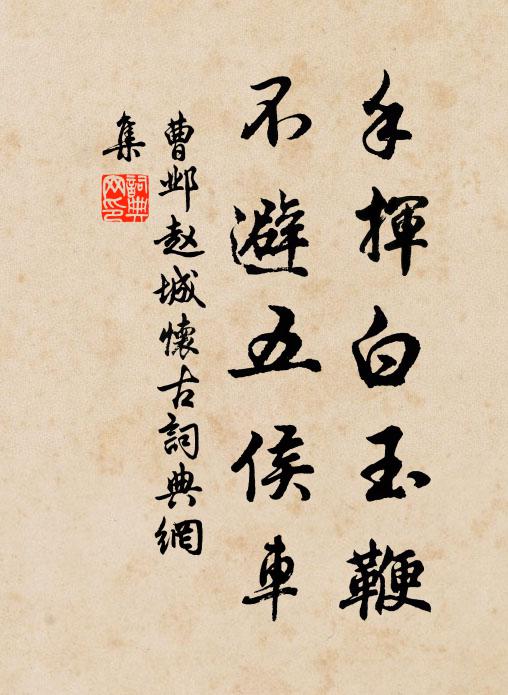 手揮白玉鞭
不避五侯車
曹邺赵城懷古詞典網
集
詞典
网印